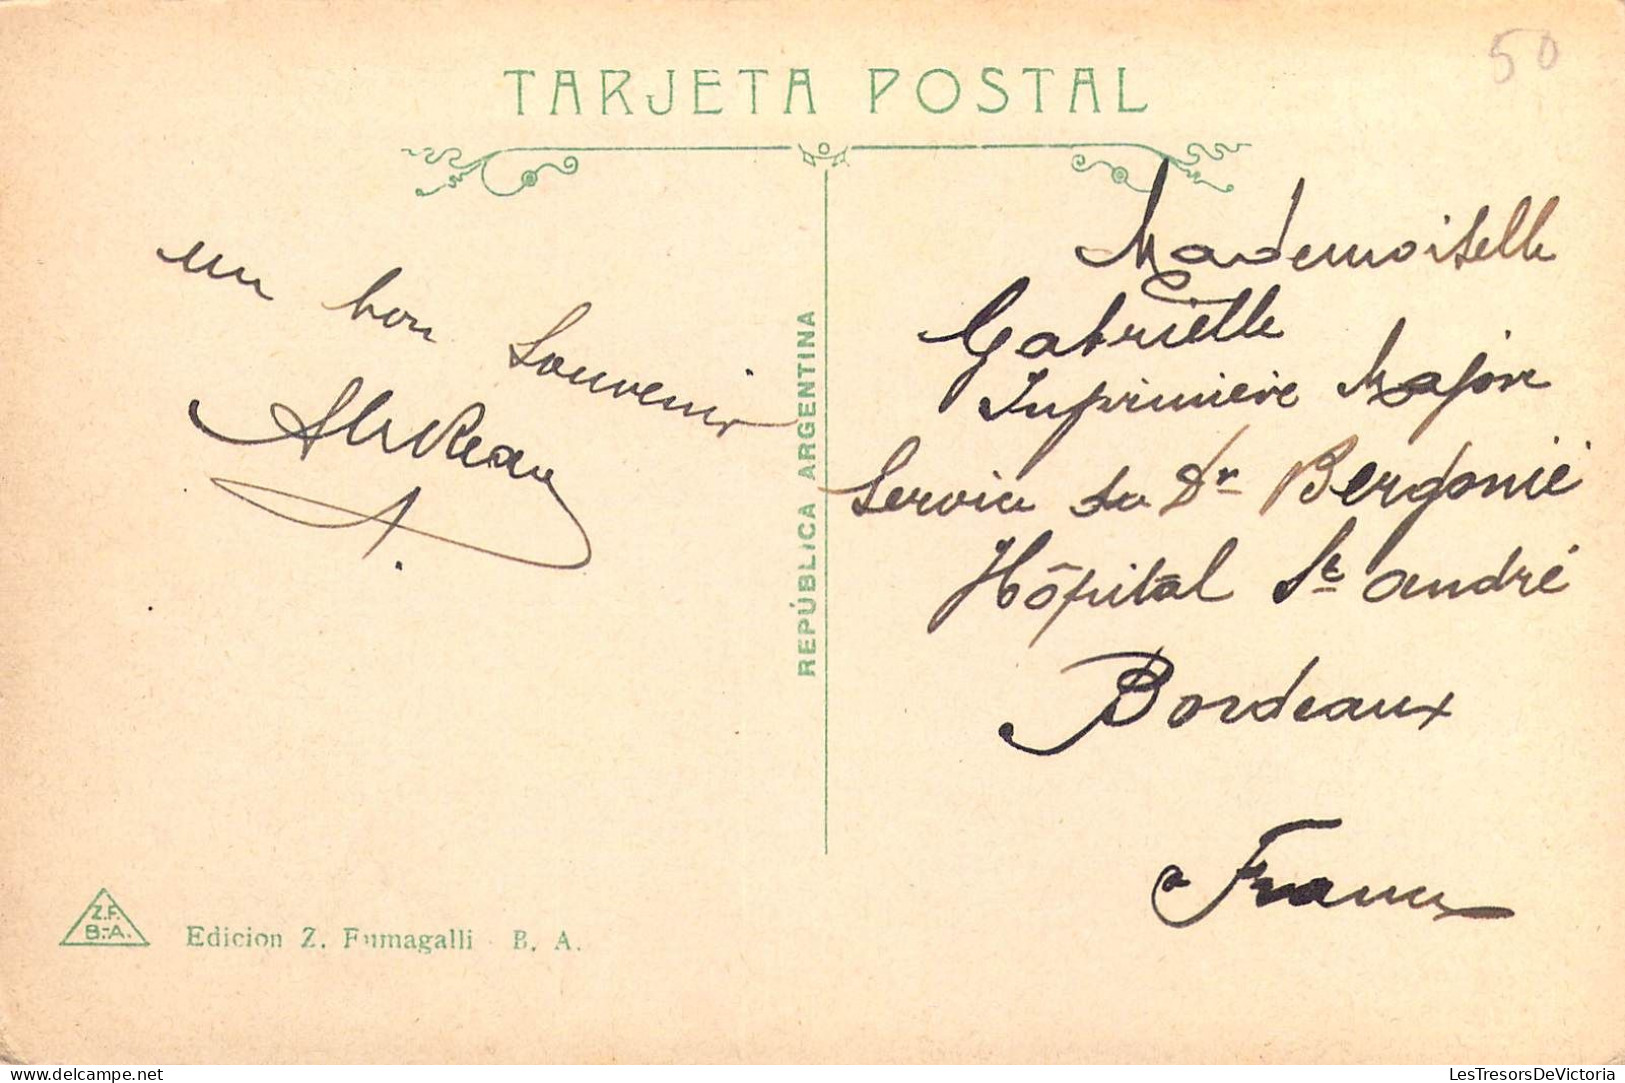 50
TARJETA POSTAL
un bon souvenir
REPÚBLICA ARGENTINA
Mademoiselle
Gabrielle
Infirmière Major
Service du Dr Bergonié
Hôpital St André
Bordeaux
France
Z.F.
B.-A.
Edicion Z. Fumagalli - B. A.
LesTresorsDeVictoria